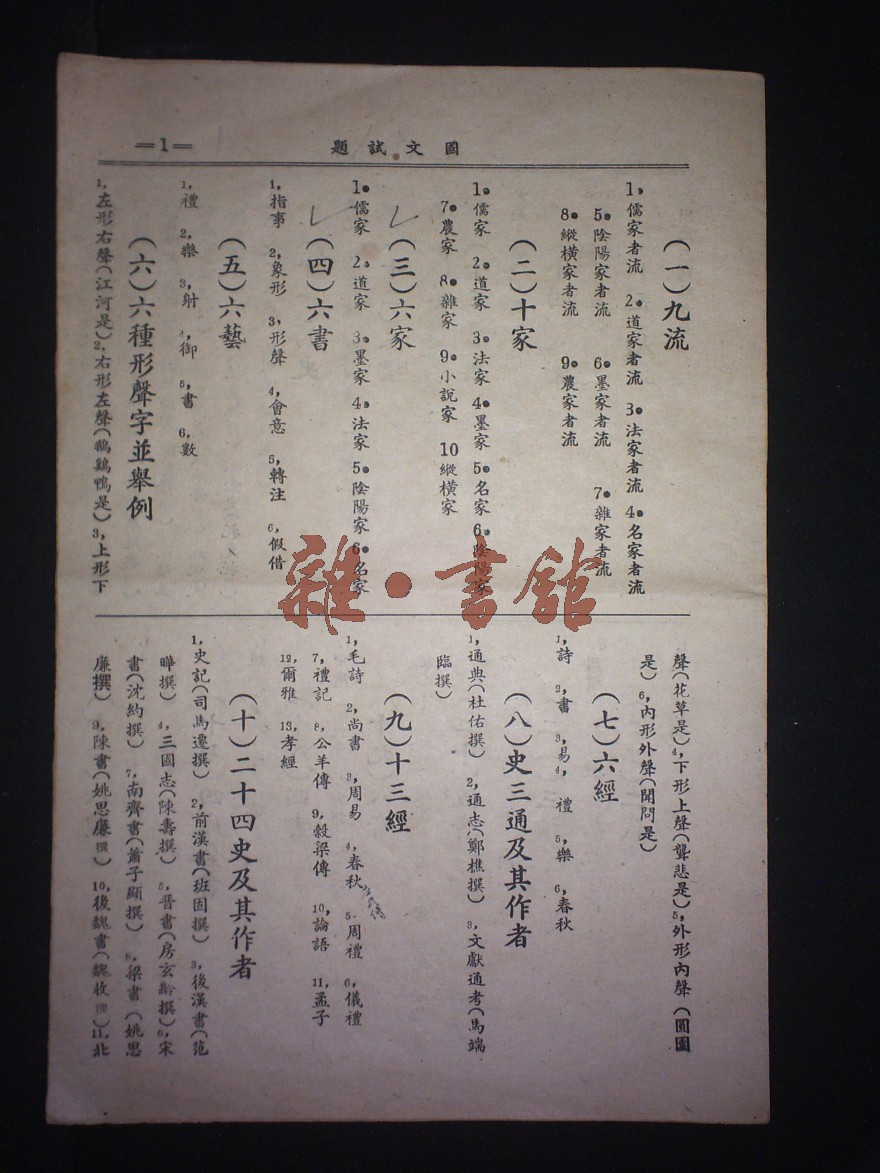 國文試題
=1=
(一)九流
1,儒家者流 2•道家者流 3•法家者流 4•名家者流
5•陰陽家者流 6•墨家者流 7•雜家者流
8•縱橫家者流 9•農家者流
(二)十家
1•儒家 2•道家 3•法家 4•墨家 5•名家 6•陰陽家
7•農家 8•雜家 9•小說家 10縱橫家
(三)六家
1•儒家 2•道家 3•墨家 4•法家 5•陰陽家 6•名家
(四)六書
1,指事 2,象形 3,形聲 4,會意 5,轉注 6,假借
(五)六藝
1,禮 2,樂 3,射 4,御 5,書 6,數
(六)六種形聲字並舉例
1,左形右聲(江河是)2,右形左聲(鵝鷄鴨是)3,上形下
聲(花草是)4,下形上聲(聾悲是)5,外形內聲(圓國
是)6,內形外聲(聞問是)
(七)六經
1,詩 2,書 3,易 4,禮 5,樂 6,春秋
(八)史三通及其作者
1,通典(杜佑撰) 2,通志(鄭樵撰) 3,文獻通考(馬端
臨撰)
(九)十三經
1,毛詩 2,尚書 3,周易 4,春秋左傳 5,周禮 6,儀禮
7,禮記 8,公羊傳 9,穀梁傳 10,論語 11,孟子
12,爾雅 13,孝經
(十)二十四史及其作者
1,史記(司馬遷撰) 2,前漢書(班固撰) 3,後漢書(范
曄撰) 4,三國志(陳壽撰) 5,晋書(房玄齡撰)6,宋
書(沈約撰) 7,南齊書(蕭子顯撰) 8,梁書(姚思
廉撰) 9,陳書(姚思廉撰) 10,後魏書(魏收撰)11,北
雜•書館